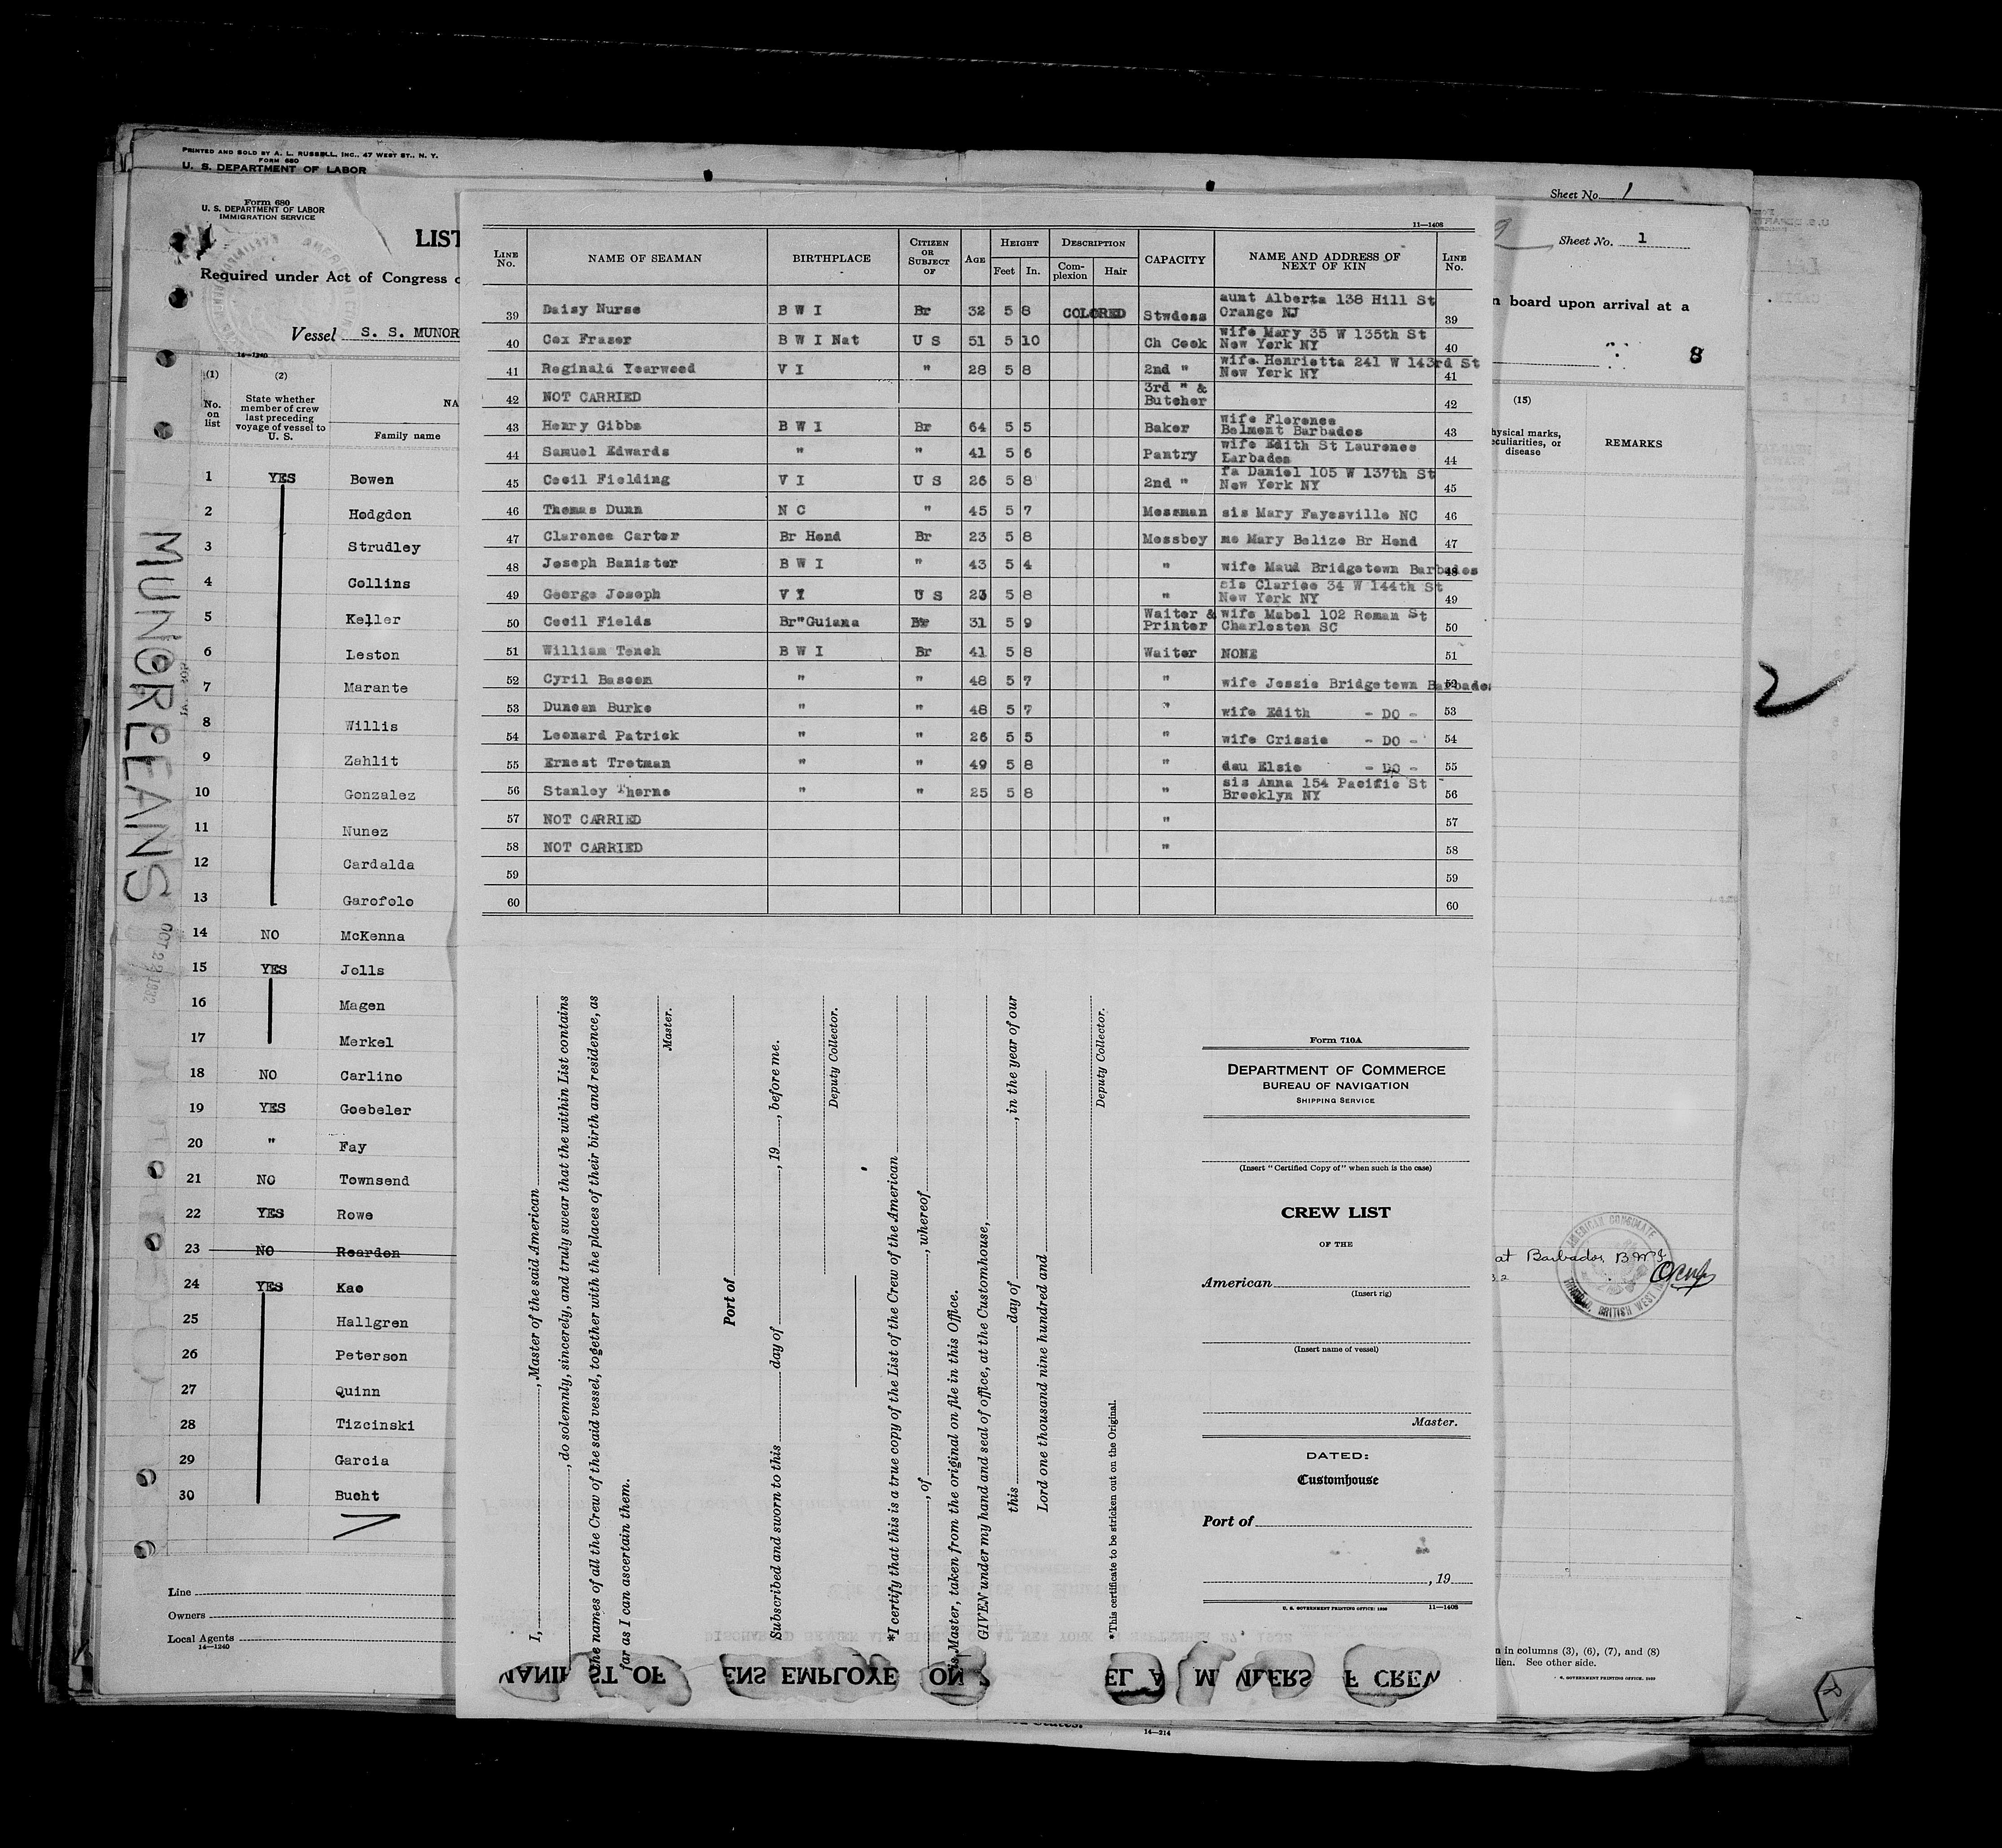 PRINTED AND SOLD BY A. L. RUSSELL, INC., 47 WEST ST., N. Y.
FORM 680
U. S. DEPARTMENT OF LABOR
Sheet No. 1
Form 680
U. S. DEPARTMENT OF LABOR
IMMIGRATION SERVICE
LIST
Sheet No. 1
Required under Act of Congress
n board upon arrival at a
Vessel S. S. MUNOR
8
14—1240
(1) (2)
No. on list
State whether member of crew last preceding voyage of vessel to U. S.
NA
Family name
(15)
hysical marks, eculiarities, or disease
REMARKS
1 YES Bowen
2 Hodgdon
3 Strudley
4 Collins
5 Keller
6 Leston
7 Marante
8 Willis
9 Zahlit
10 Gonzalez
11 Nunez
12 Cardalda
13 Garofolo
14 NO McKenna
15 YES Jolls
16 Magen
17 Merkel
18 NO Carlino
19 YES Goebeler
20 " Fay
21 NO Townsend
22 YES Rowe
23 NO Reardon
24 YES Kao
25 Hallgren
26 Peterson
27 Quinn
28 Tizcinski
29 Garcia
30 Bucht
Line
Owners
Local Agents
14—1240
MUNORLEANS
OCT 22 1932
11—1408
LINE No. NAME OF SEAMAN BIRTHPLACE CITIZEN OR SUBJECT OF AGE HEIGHT DESCRIPTION CAPACITY NAME AND ADDRESS OF NEXT OF KIN LINE No.
Feet In. Complexion Hair
39 Daisy Nurse B W I Br 32 5 8 COLORED Stwdess aunt Alberta 138 Hill St Orange NJ 39
40 Cox Fraser B W I Nat U S 51 5 10 Ch Cook wife Mary 35 W 135th St New York NY 40
41 Reginald Yearwood V I " 28 5 8 2nd " wife Henrietta 241 W 143rd St New York NY 41
42 NOT CARRIED 3rd " & Butcher 42
43 Henry Gibbs B W I Br 64 5 5 Baker wife Florence Belmont Barbados 43
44 Samuel Edwards " " 41 5 6 Pantry wife Edith St Laurence Barbados 44
45 Cecil Fielding V I U S 26 5 8 2nd " fa Daniel 105 W 137th St New York NY 45
46 Thomas Dunn N C " 45 5 7 Messman sis Mary Fayesville NC 46
47 Clarence Carter Br Hond Br 23 5 8 Messboy mo Mary Belize Br Hond 47
48 Joseph Banister B W I " 43 5 4 " wife Maud Bridgetown Barbados 48
49 George Joseph V I U S 23 5 8 " sis Clarice 34 W 144th St New York NY 49
50 Cecil Fields Br"Guiana Br 31 5 9 Waiter & Printer wife Mabel 102 Roman St Charleston SC 50
51 William Tench B W I Br 41 5 8 Waiter NONE 51
52 Cyril Bascom " " 48 5 7 " wife Jessie Bridgetown Barbados 52
53 Duncan Burke " " 48 5 7 " wife Edith - DO - 53
54 Leonard Patrick " " 26 5 5 " wife Crissie - DO - 54
55 Ernest Trotman " " 49 5 8 " dau Elsie - DO - 55
56 Stanley Thorne " " 25 5 8 " sis Anna 154 Pacific St Brooklyn NY 56
57 NOT CARRIED " 57
58 NOT CARRIED " 58
59 59
60 60
I, , Master of the said American
, do solemnly, sincerely, and truly swear that the within List contains
the names of all the Crew of the said vessel, together with the places of their birth and residence, as
far as I can ascertain them.
Master.
Port of
Subscribed and sworn to this day of , 19 , before me.
Deputy Collector.
*I certify that this is a true copy of the List of the Crew of the American
, of , whereof
is Master, taken from the original on file in this Office.
GIVEN under my hand and seal of office, at the Customhouse,
this day of , in the year of our
Lord one thousand nine hundred and
Deputy Collector.
*This certificate to be stricken out on the Original.
Form 710A
DEPARTMENT OF COMMERCE
BUREAU OF NAVIGATION
SHIPPING SERVICE
(Insert "Certified Copy of" when such is the case)
CREW LIST
OF THE
American
(Insert rig)
(Insert name of vessel)
Master.
DATED:
Customhouse
Port of
, 19
U. S. GOVERNMENT PRINTING OFFICE: 1930 11—1408
at Barbados, B.W.I.
AMERICAN CONSULATE
TRINIDAD, BRITISH WEST
2
n in columns (3), (6), (7), and (8)
lien. See other side.
GOVERNMENT PRINTING OFFICE
14—214
ST OF
ENS EMPLOYE
ON
EL A
M
F CREW